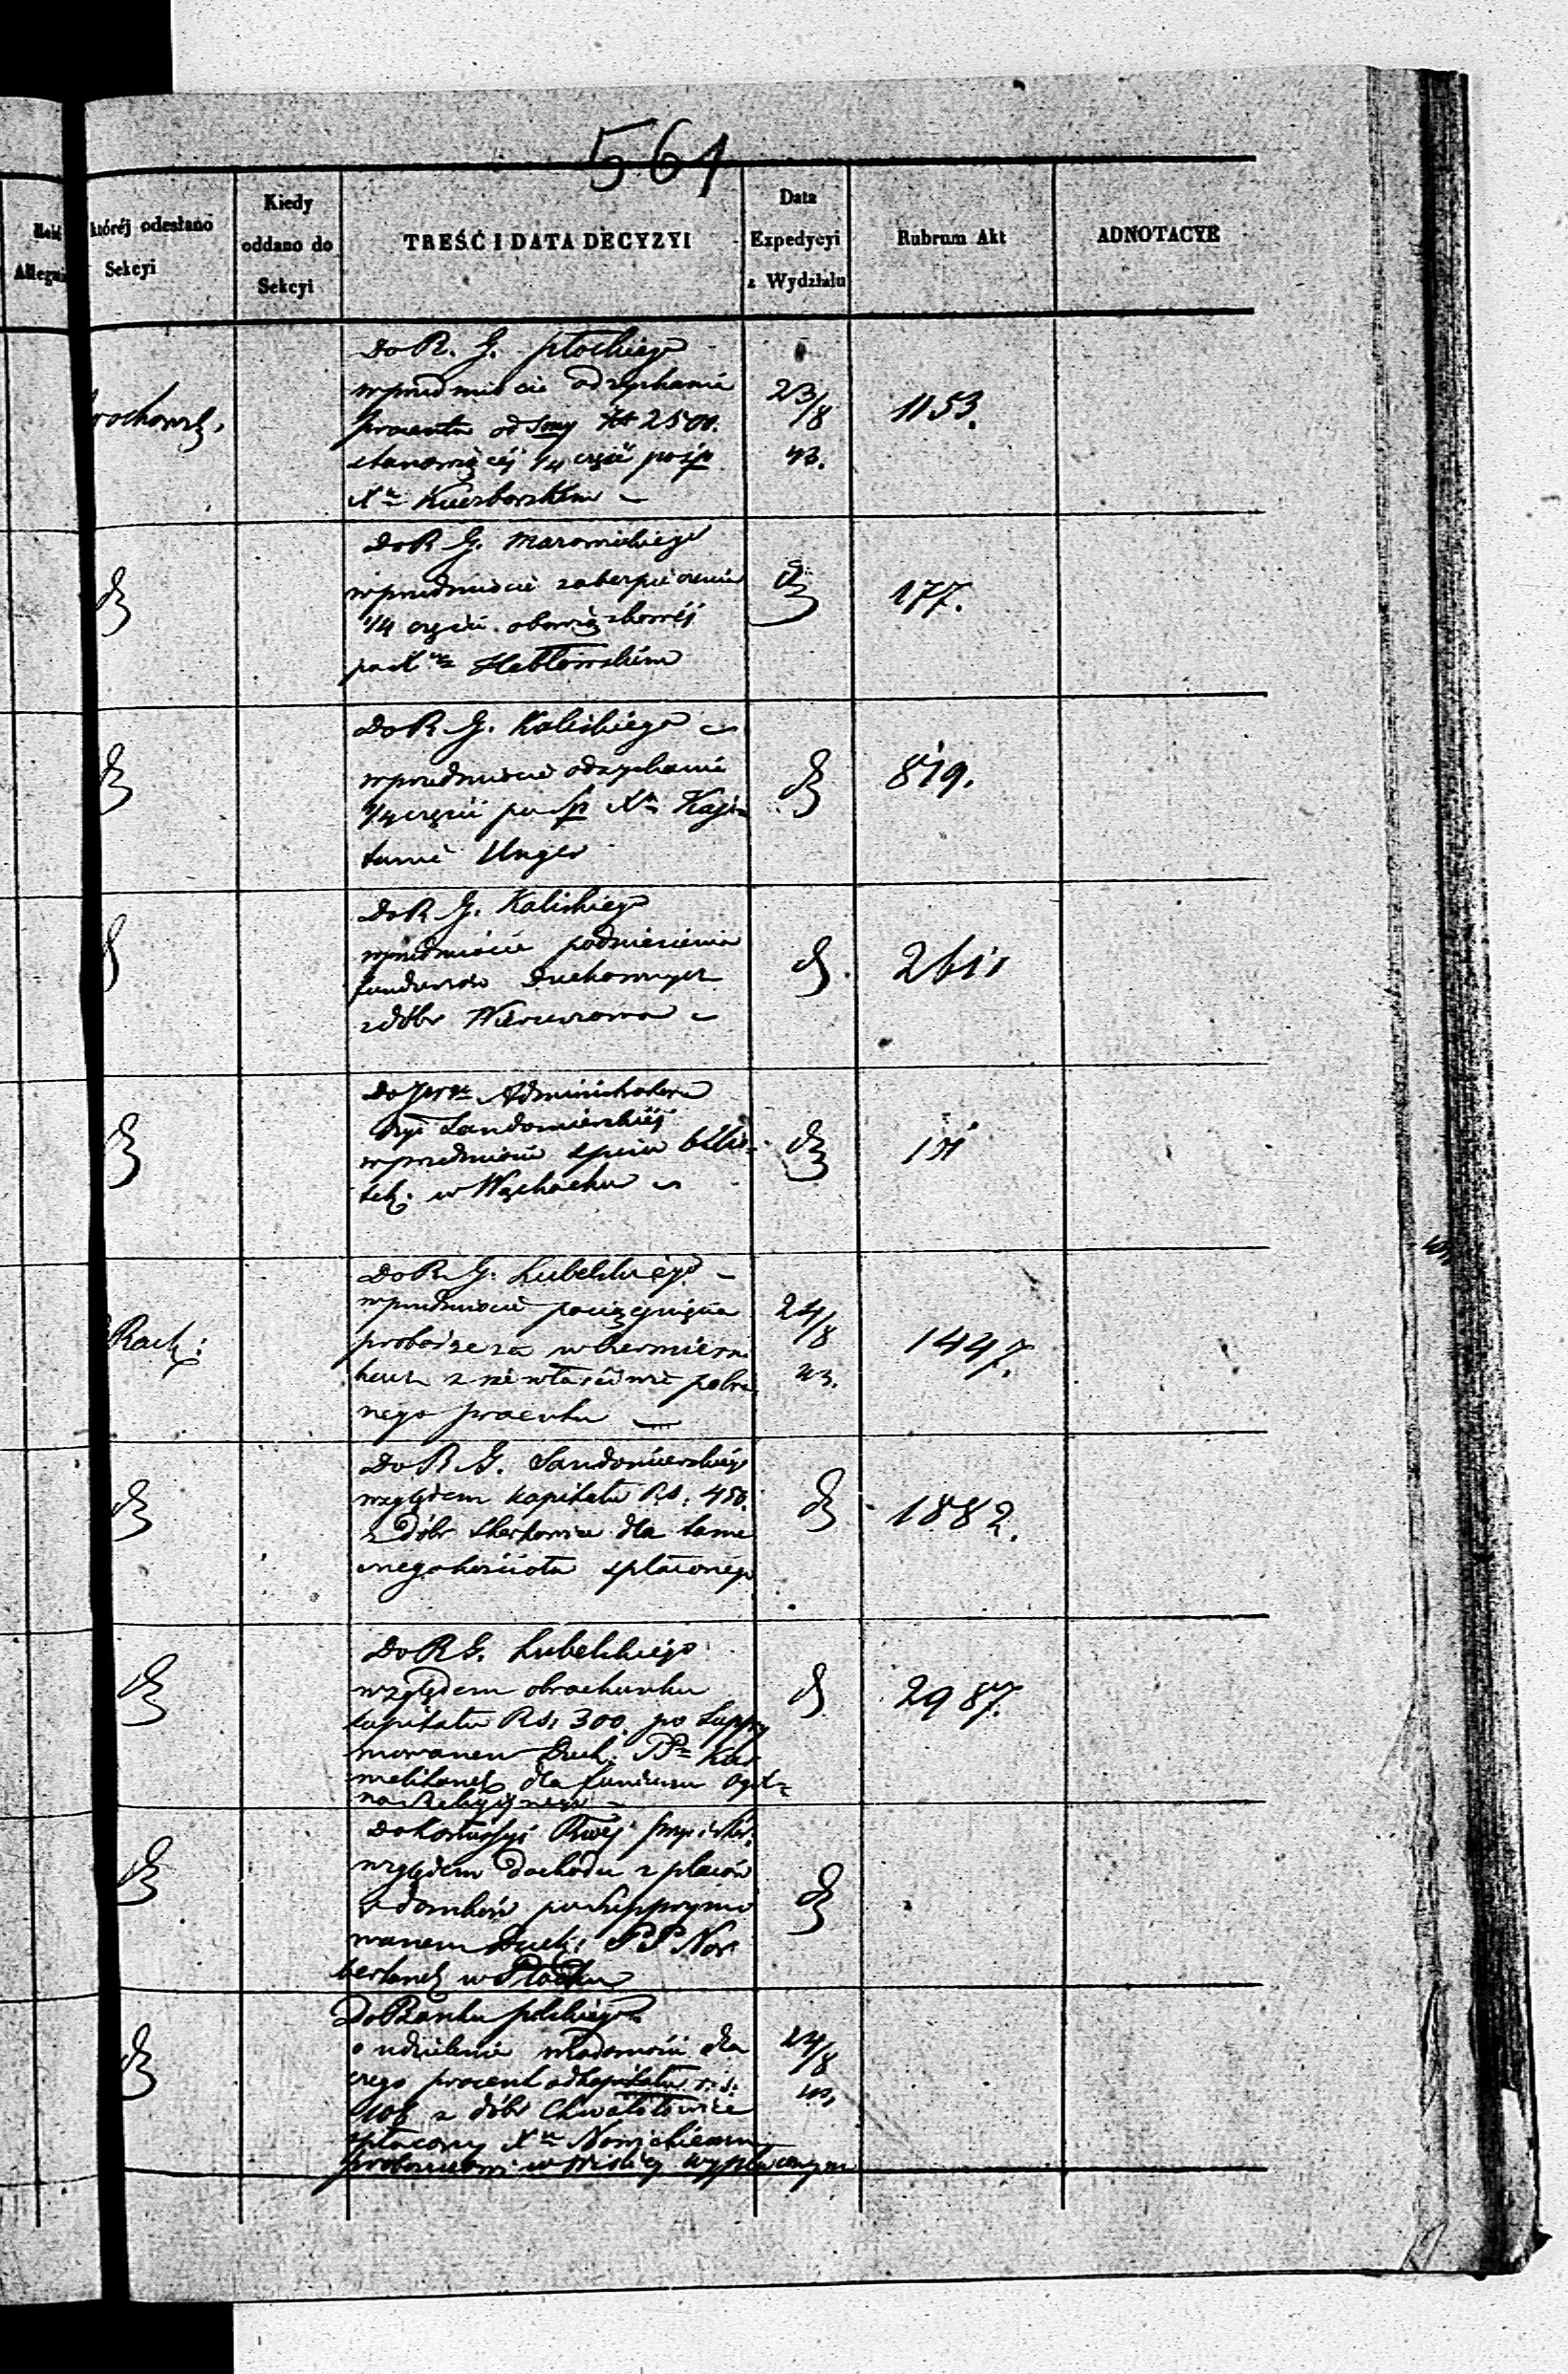 561
któréj odesłano
Sekcyi
Kiedy
oddano do
Sekcyi
TREŚĆ I DATA DECYZYI
Data
Expedycyi
z Wydziału
Rubrum Akt
ADNOTACYE
Do R. G. Płockiego
w przedmiocie odzyskania
procentu od Smy 2500.
stanowiącéj 1/4 część po śp
23/8
43.
1153.
Do R G. Mazowieckiego
w przedmiocie zabezpieczenia
1/4 części obowiązkowéj
177.
Do R G. Kaliskiego
w przedmiocie odzyskania
1/4 części po śp Xu Kaje=
tanie Unger
819.
Do R G. Kaliskiego
w przedmiocie podniesienia
funduszów Duchownych
z dóbr Wieruszowa
2611
Do Administratora
Dyi Sandomierskiéj
w przedmiocie spisu biblio=
tek w Wąchocku
Rach:
Do R G. Lubelskiego
w przedmiocie pociągnięcia
proboszcza w Czermierni
kach z niewłaściwie pobra
nego procentu
24/8
43.
1447.
Do R G. Sandomierskiego
względem kapitału Rs. 450.
z dóbr dla tame
cznego kościoła spłaconego
1882.
Do R G. Lubelskiego
względem obrachunku
kapitału Rs: 300. po Suppry
mowanem Duch. PPn Kar
melitanek dla funduszu Ogól=
no Religijnego
2987.
Do
względem dochodu z placów
i domków po Supprymo
wanem Duch: PP Nor
bertanek w Płocku
Do Banku polskiego
o udzielenie wiadomości dla
czego procent od kapitału r. s.
z dóbr Chwałotowice
spłacony Xu Nowickiemu
proboszczowi w Wiślicy
24/8
43.